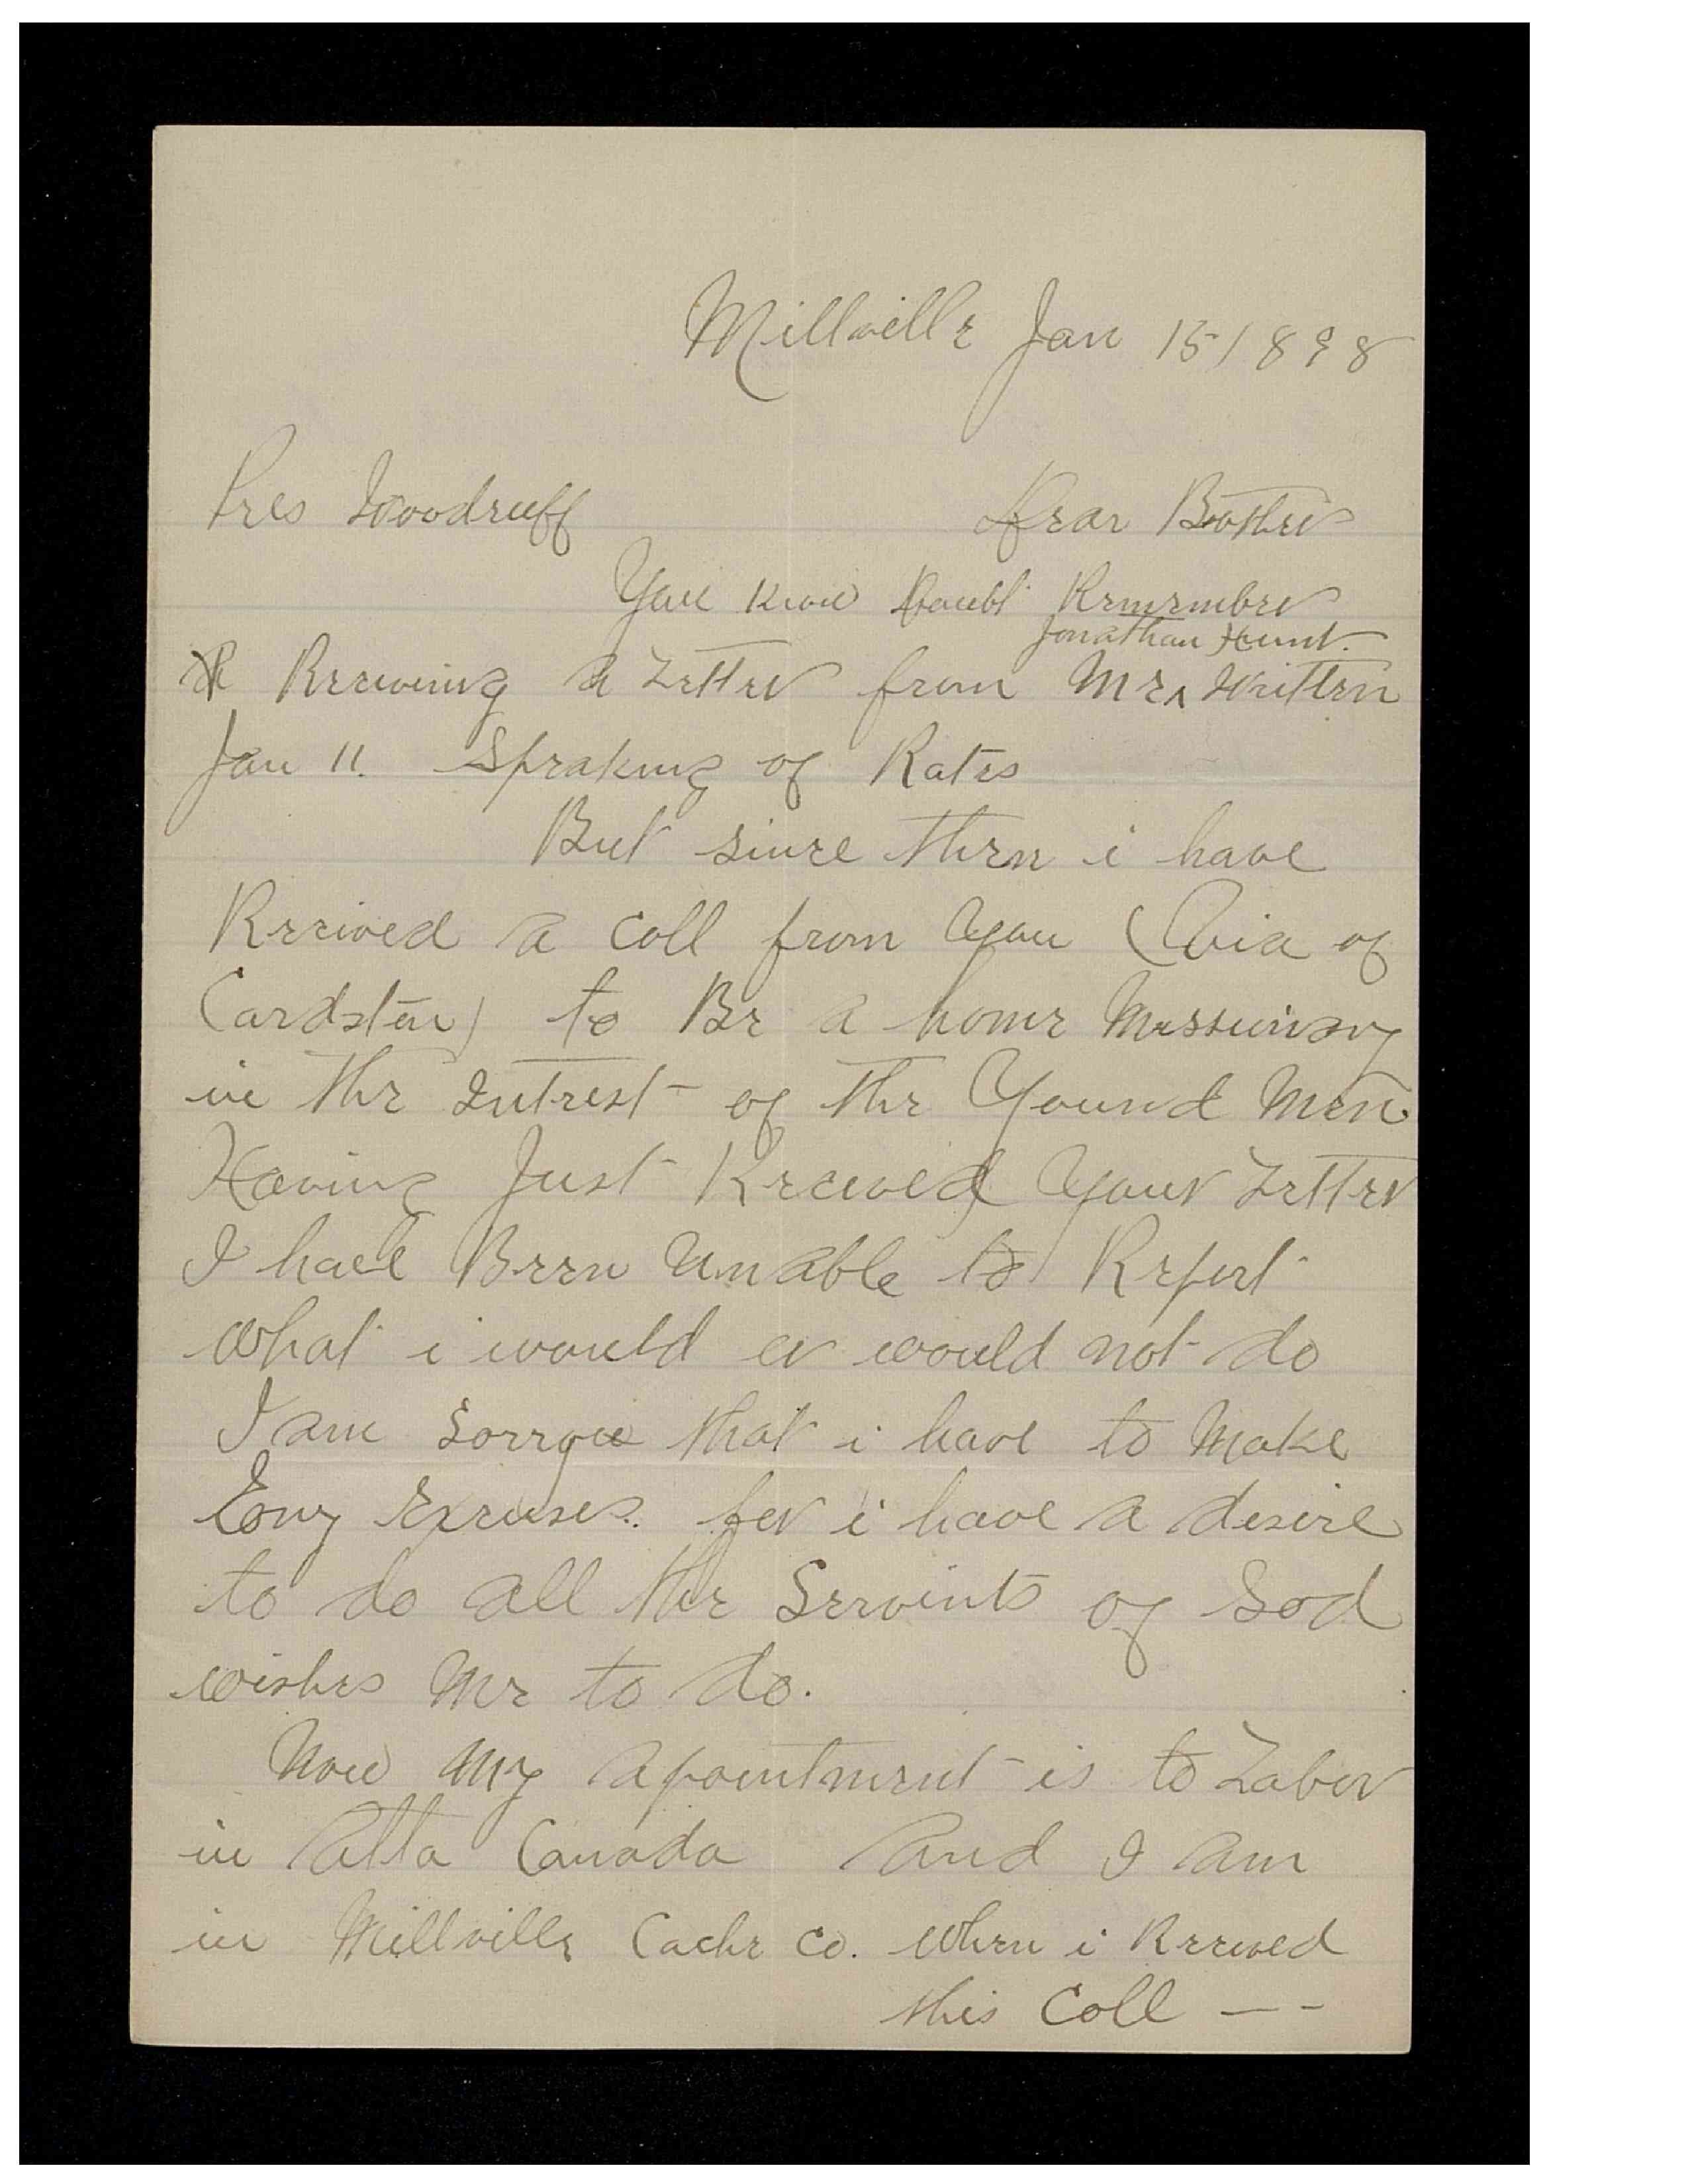 Millville Jan 15/898
Pres Woodruff Dear Brother
You know Doubt Remember
Jonathan Hunt.
Receiving a Letter from Me^ Written
Jan 11. Speaking of Rates
But since then i have
Recived a Coll from you (Via of
Cardston) to Be a home Missionary
in the Intrest of the Yound Men
Having Just Received Your Letter
I have Been Unable to Report
What i would or would not do
I am Sorrow that i have to Make
Eny Excuses. for i have a desire
to do all the Servints of God
wishes Me to do.
Now My apointment is to Labor
in Alta Canada And I am
in Millville Cache Co. When i Received
this Coll - -